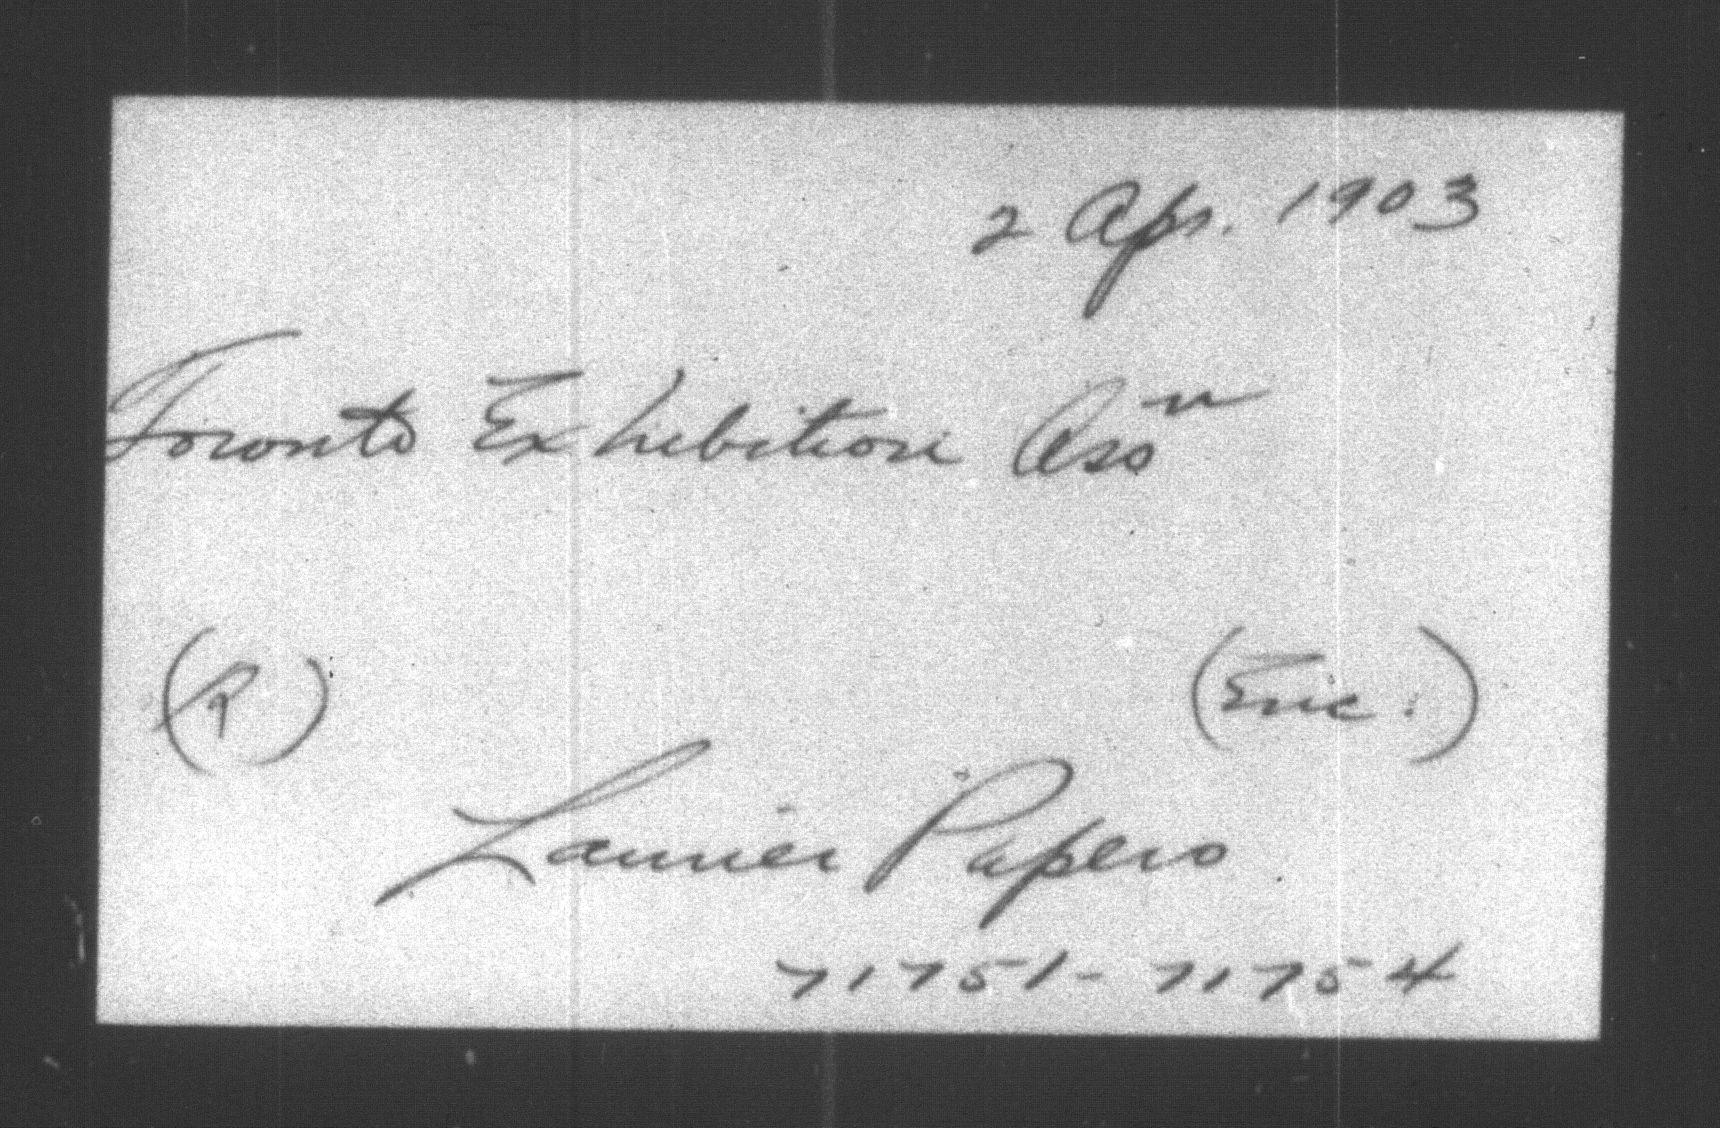 2 Apr. 1903
Toronto Exhibition Asso^n
(R) (Enc.)
Laurier Papers
71751-71754